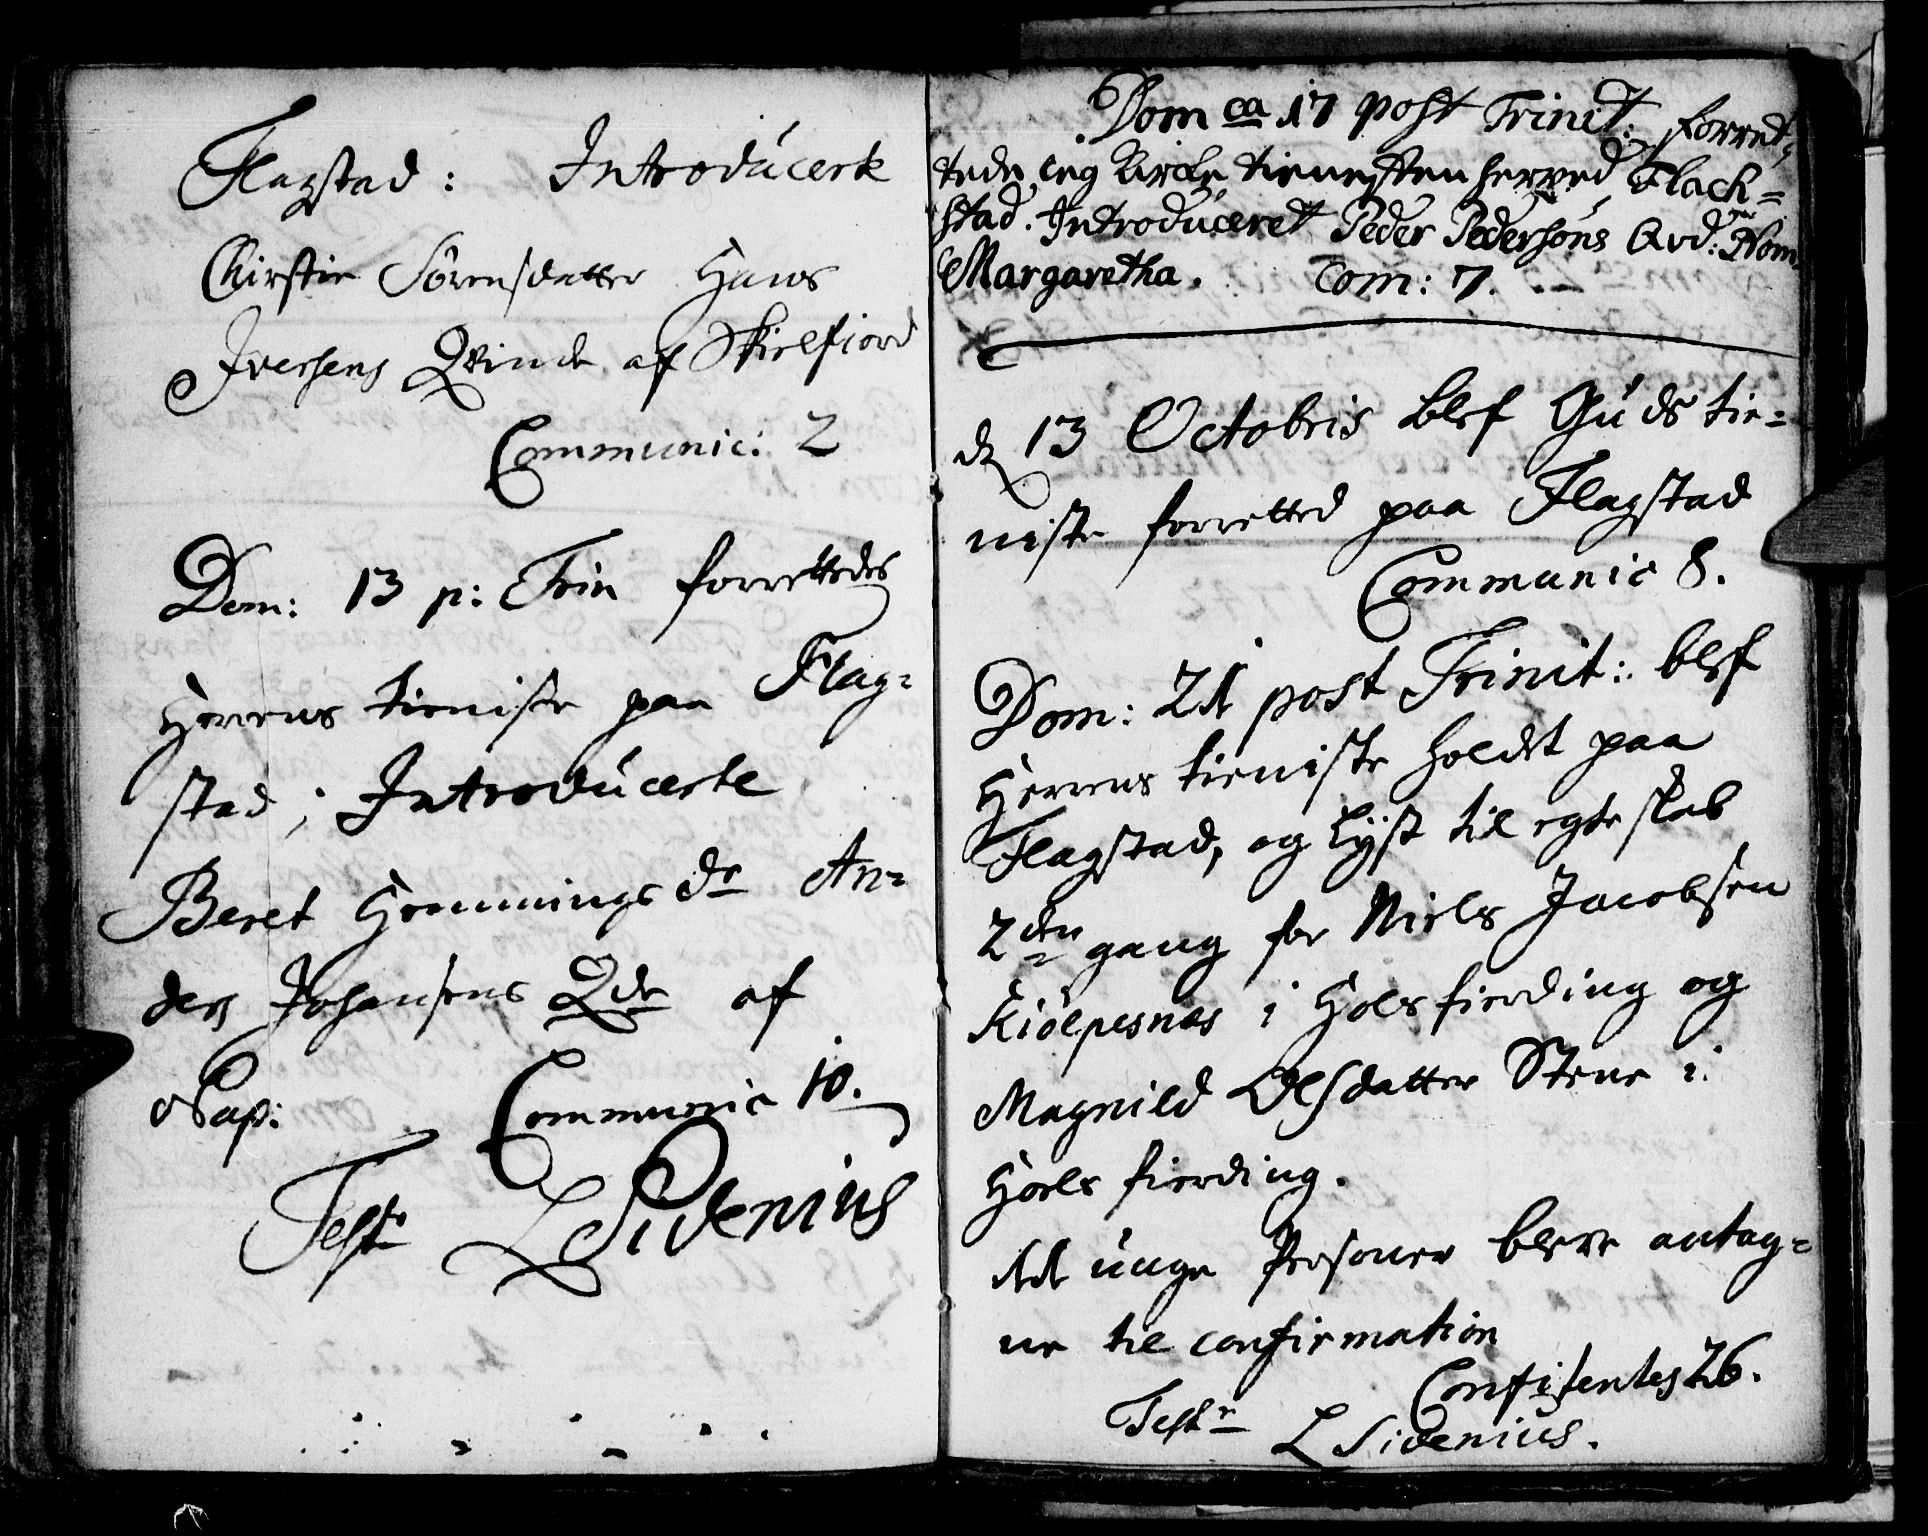 Flagstad: Introducerte
Chirstin Sörensdatter Hans
Iversens Qvinde af Skielfiord
Communic: 2
Dom: 13 p: Trin forrettedes
Herrens tieniste paa Flag=
stad; Introducerte
Beret Hemmings dr An=
ders Johansens Qde af
Nap: Communic 10.
Teste L Sidenius
Domca 17 post Trinit: forret=
tede ieg Kirke tienesten herved Flack=
stad. Introduceret Peder Pedersöns Qvd: Nom:
Margaretha. Com: 7.
d 13 Octobris blef Guds tie=
niste forretted paa Flagstad
Communic 8.
Dom: 21 post Trinit: blef
Herrens tieniste holdet paa
Flagstad, og lyst til egteskab
2den gang for Niels Jacobsen
Kiölpesnes i Hols fierding og
Magnild Olsdatter Stene i
Hoels fierding.
11 unge Personer bleve antag=
ne til confirmation
Confitentes 26.
Teste L Sidenius.